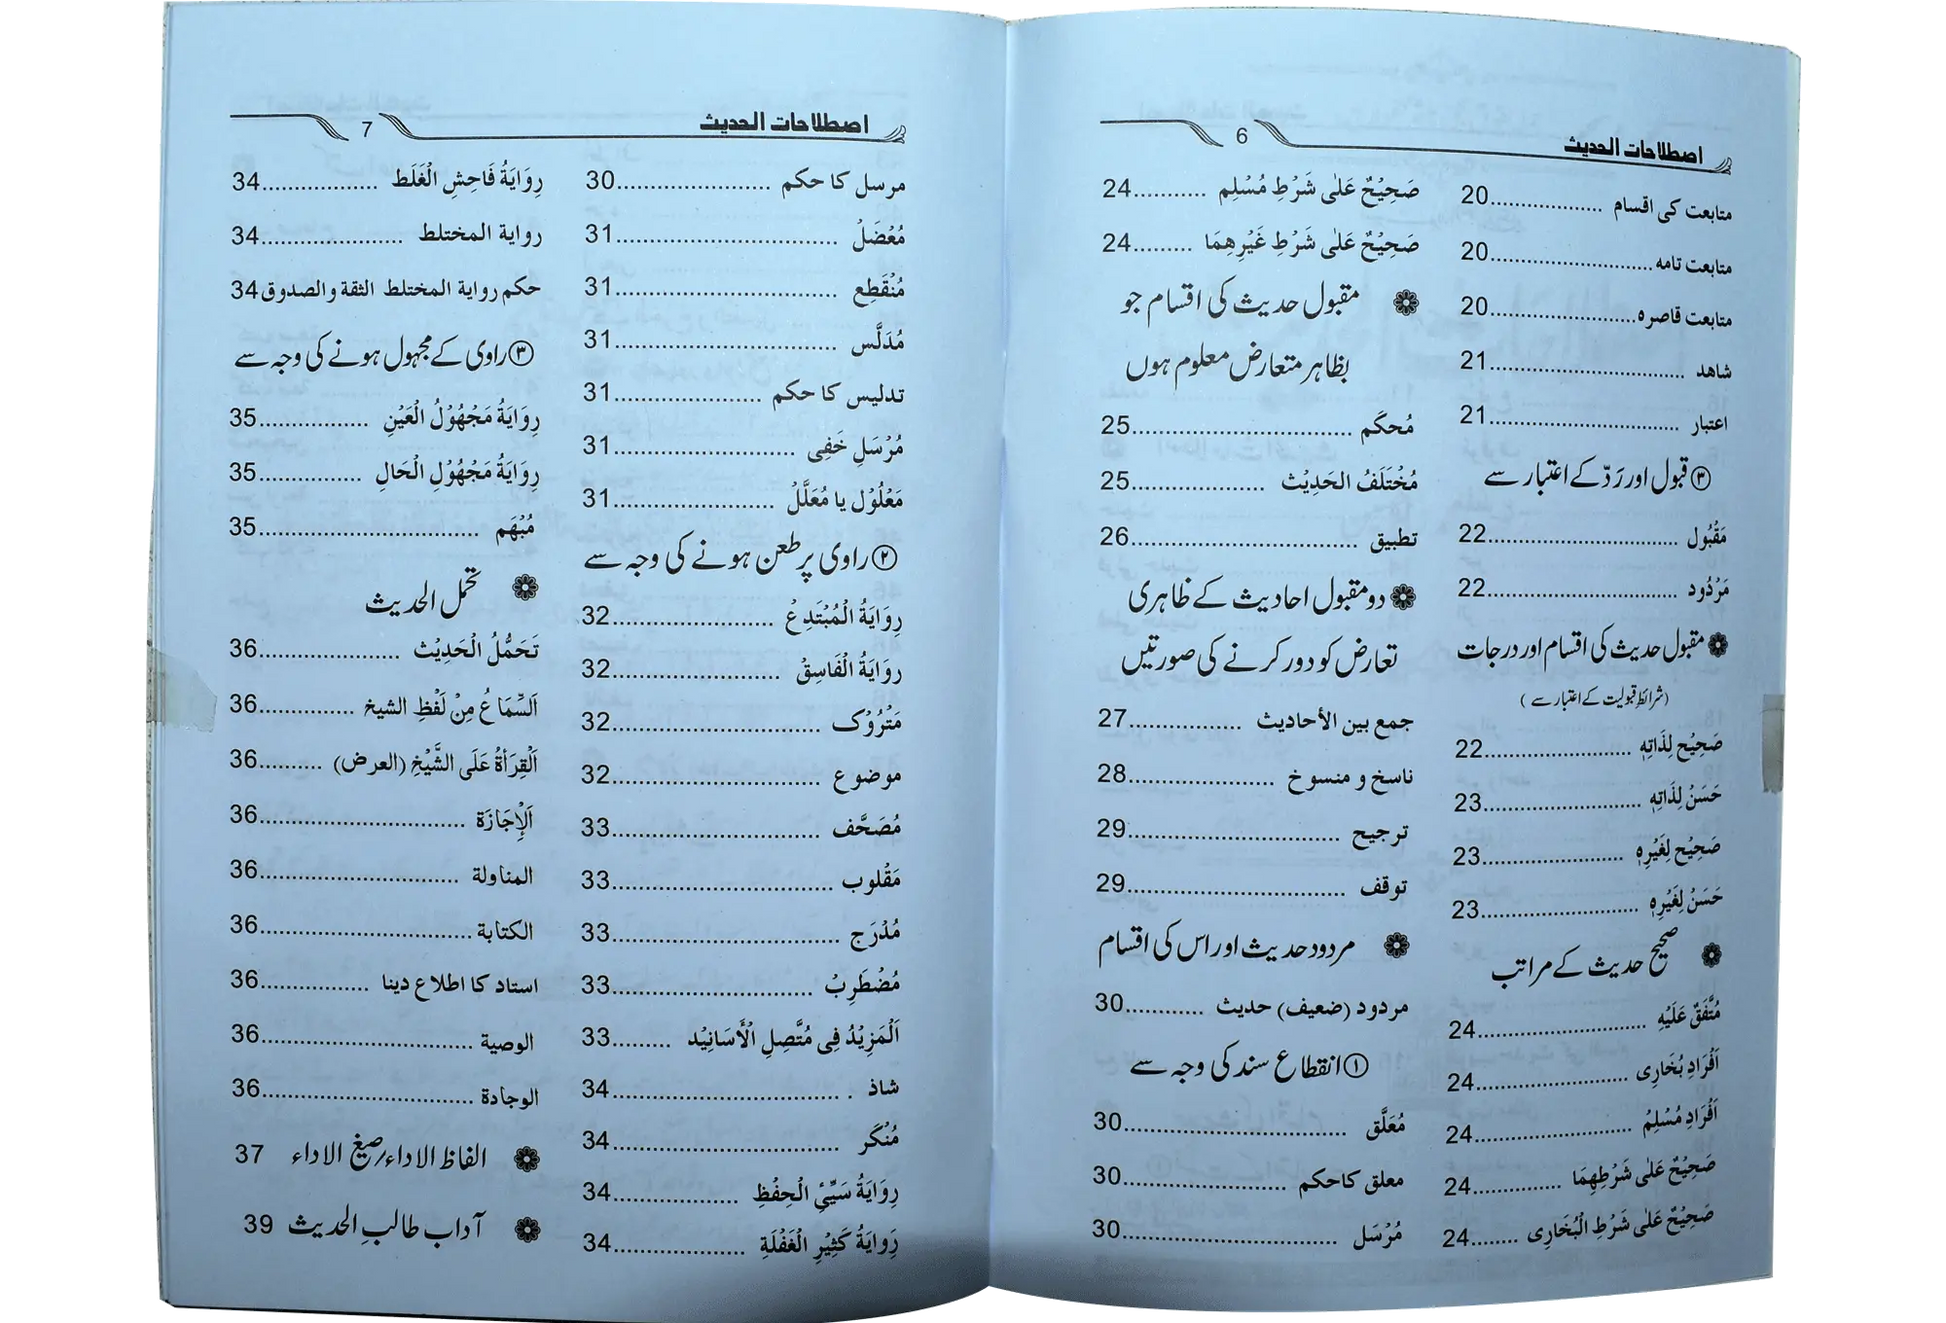 اصطلاحات الحدیث 6
متابعت کی اقسام ................... 20
متابعت تامہ ................... 20
متابعت قاصرہ ................... 20
شاهد ................... 21
اعتبار ................... 21
③ قبول اور رَدّ کے اعتبار سے
مَقْبُول ................... 22
مَرْدُود ................... 22
مقبول حدیث کی اقسام اور درجات
(شرائطِ قبولیت کے اعتبار سے)
صَحِيْح لِذَاتِهٖ ................... 22
حَسَنْ لِذَاتِهٖ ................... 23
صَحِيْح لِغَيْرِهٖ ................... 23
حَسَنْ لِغَيْرِهٖ ................... 23
صحیح حدیث کے مراتب
مُتَّفَقٌ عَلَيْهِ ................... 24
اَفْرَادِ بُخَارِی ................... 24
اَفْرَادِ مُسْلِمْ ................... 24
صَحِيْحٌ عَلٰى شَرْطِهِمَا ............ 24
صَحِيْحٌ عَلٰى شَرْطِ الْبُخَارِی ....... 24
صَحِيْحٌ عَلٰى شَرْطِ مُسْلِم .......... 24
صَحِيْحٌ عَلٰى شَرْطِ غَيْرِهِمَا ........ 24
مقبول حدیث کی اقسام جو
بظاہر متعارض معلوم ہوں
مُحكَم ................... 25
مُخْتَلَفُ الحَدِيْث ................... 25
تطبیق ................... 26
دو مقبول احادیث کے ظاہری
تعارض کو دور کرنے کی صورتیں
جمع بين الأحاديث ............... 27
ناسخ و منسوخ ................... 28
ترجیح ................... 29
توقف ................... 29
مردود حدیث اور اس کی اقسام
مردود (ضعیف) حدیث .......... 30
① انقطاع سند کی وجہ سے
مُعَلَّق ................... 30
معلق کا حکم ................... 30
مُرْسَل ................... 30
اصطلاحات الحدیث 7
مرسل کا حکم ................... 30
مُعْضَلْ ................... 31
مُنْقَطِع ................... 31
مُدَلَّس ................... 31
تدلیس کا حکم ................... 31
مُرْسَلِ خَفِی ................... 31
مَعْلُوْل یا مُعَلَّلْ ................... 31
② راوی پر طعن ہونے کی وجہ سے
رِوَايَةُ الْمُبْتَدِعْ ................... 32
رِوَايَةُ الْفَاسِقْ ................... 32
مَتْرُوْك ................... 32
موضوع ................... 32
مُصَحَّف ................... 33
مَقْلُوب ................... 33
مُدْرَج ................... 33
مُضْطَرِبْ ................... 33
اَلْمَزِيْدُ فِی مُتَّصِلِ الْأَسَانِيْد ........ 33
شاذ ................... 34
مُنْكَر ................... 34
رِوَايَةُ سَيِّئِ الْحِفْظِ ................ 34
رِوَايَةُ كَثِيْرِ الْغَفْلَةِ ................ 34
رِوَايَةُ فَاحِشِ الْغَلَط ............... 34
رواية المختلط ................... 34
حكم رواية المختلط الثقة والصدوق 34
③ راوی کے مجہول ہونے کی وجہ سے
رِوَايَةُ مَجْهُوْلُ الْعَيْنِ .............. 35
رِوَايَةُ مَجْهُوْلِ الْحَالِ ............. 35
مُبْهَم ................... 35
تحمل الحدیث
تَحَمُّلُ الْحَدِيْث ................... 36
اَلسِّمَاعُ مِنْ لَفْظِ الشيخ ............ 36
اَلْقِرَأةُ عَلَى الشَّيْخِ (العرض) ........ 36
اَلْإِجَازَة ................... 36
المناولة ................... 36
الكتابة ................... 36
استاد کا اطلاع دینا ............... 36
الوصية ................... 36
الوجادة ................... 36
الفاظ الاداء/صیغ الاداء 37
آداب طالبِ الحدیث 39